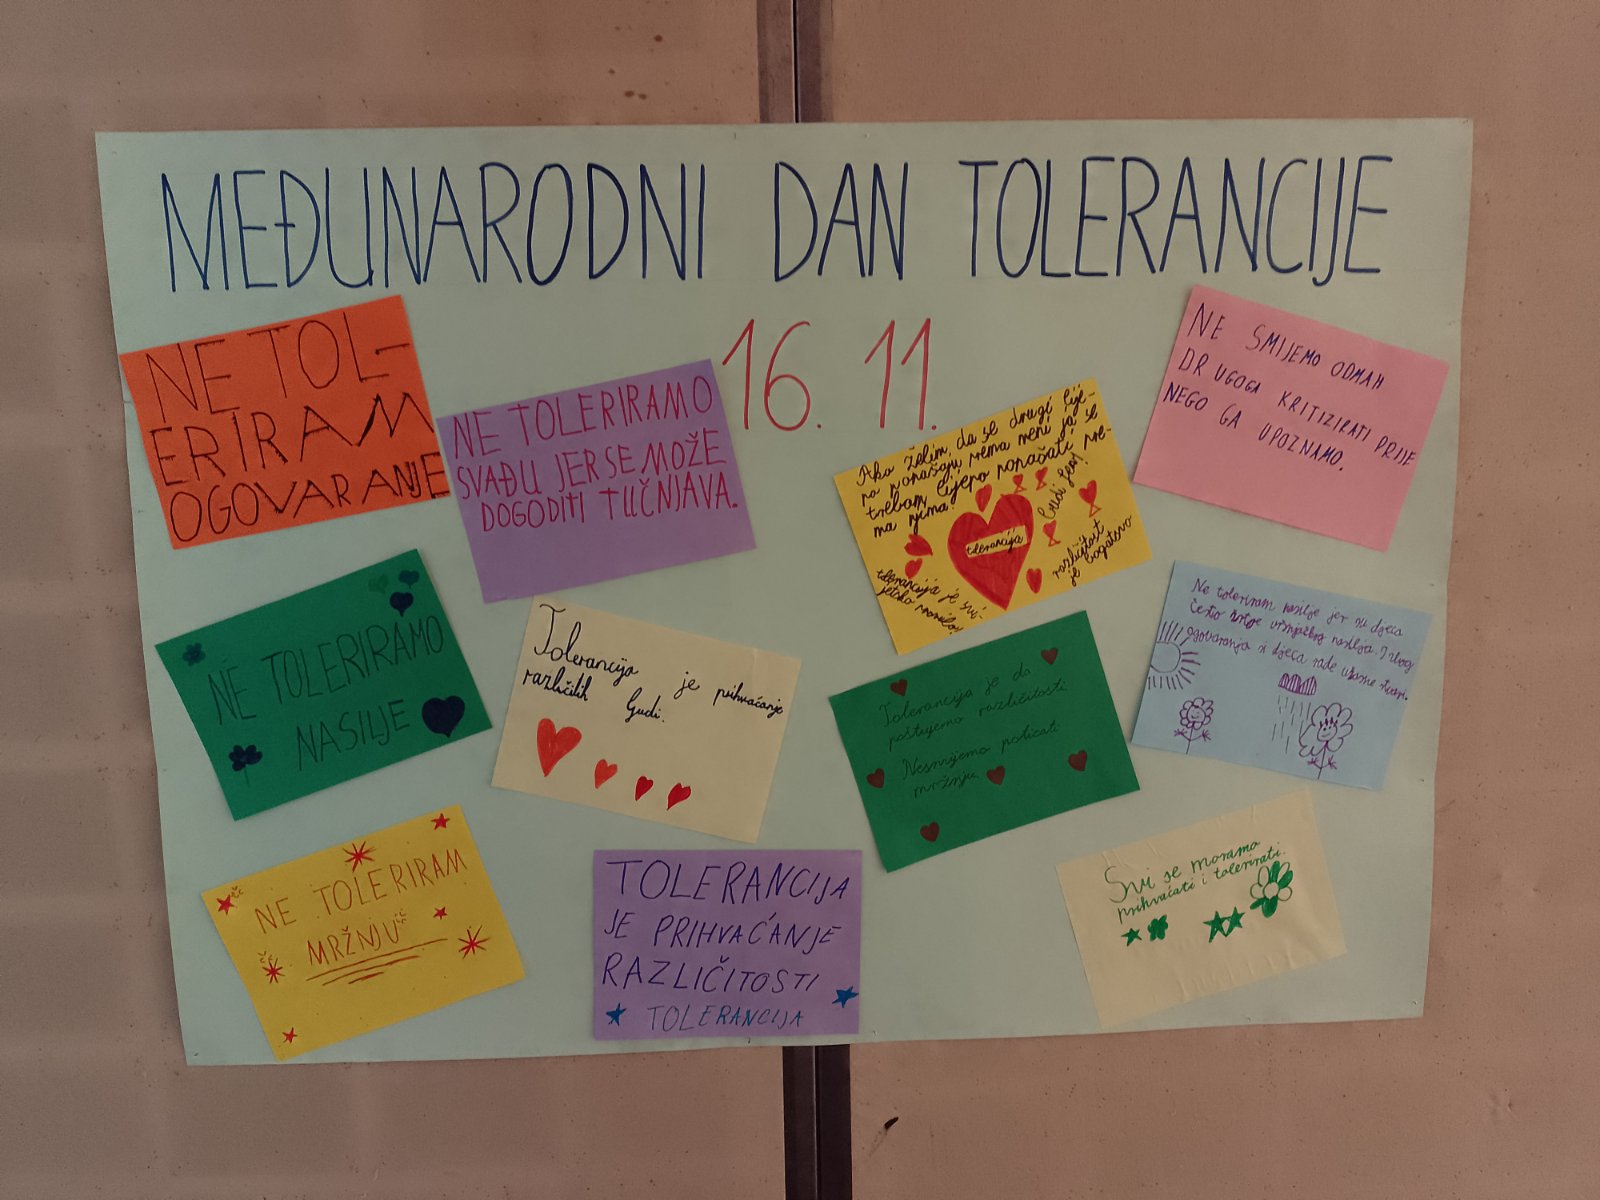 MEĐUNARODNI DAN TOLERANCIJE
16. 11.
NE TOL-
ERIRAM
OGOVARANJE
NE TOLERIRAMO
SVAĐU JER SE MOŽE
DOGODITI TUČNJAVA.
Ako želim da se drugi lije-
po ponašaju prema meni ja se
trebam lijepo ponašati pre-
ma njima!
Budi fer!
tolerancija
tolerancija je svi-
jetsko pravilo!
različitost
je bogatstvo
NE SMIJEMO ODMAH
DRUGOGA KRITIZIRATI PRIJE
NEGO GA UPOZNAMO.
NE TOLERIRAMO
NASILJE
Tolerancija je prihvaćanje
različitih ljudi.
Tolerancija je da
poštujemo različitosti
Nesmijemo poticati
mržnju.
Ne toleriram nasilje jer su djeca
često žrtve vršnjačkog nasilja. I zbog
ogovaranja si djeca rade užasne stvari.
NE TOLERIRAM
MRŽNJU
TOLERANCIJA
JE PRIHVAĆANJE
RAZLIČITOSTI
TOLERANCIJA
Svi se moramo
prihvaćati i tolerirati.